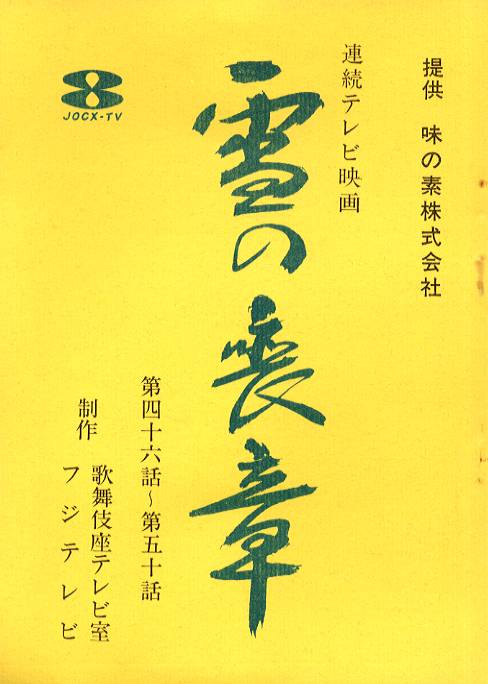 提供　味の素株式会社
連続テレビ映画
雪の喪章
第四十六話～第五十話
制作　歌舞伎座テレビ室
フジテレビ
JOCX-TV